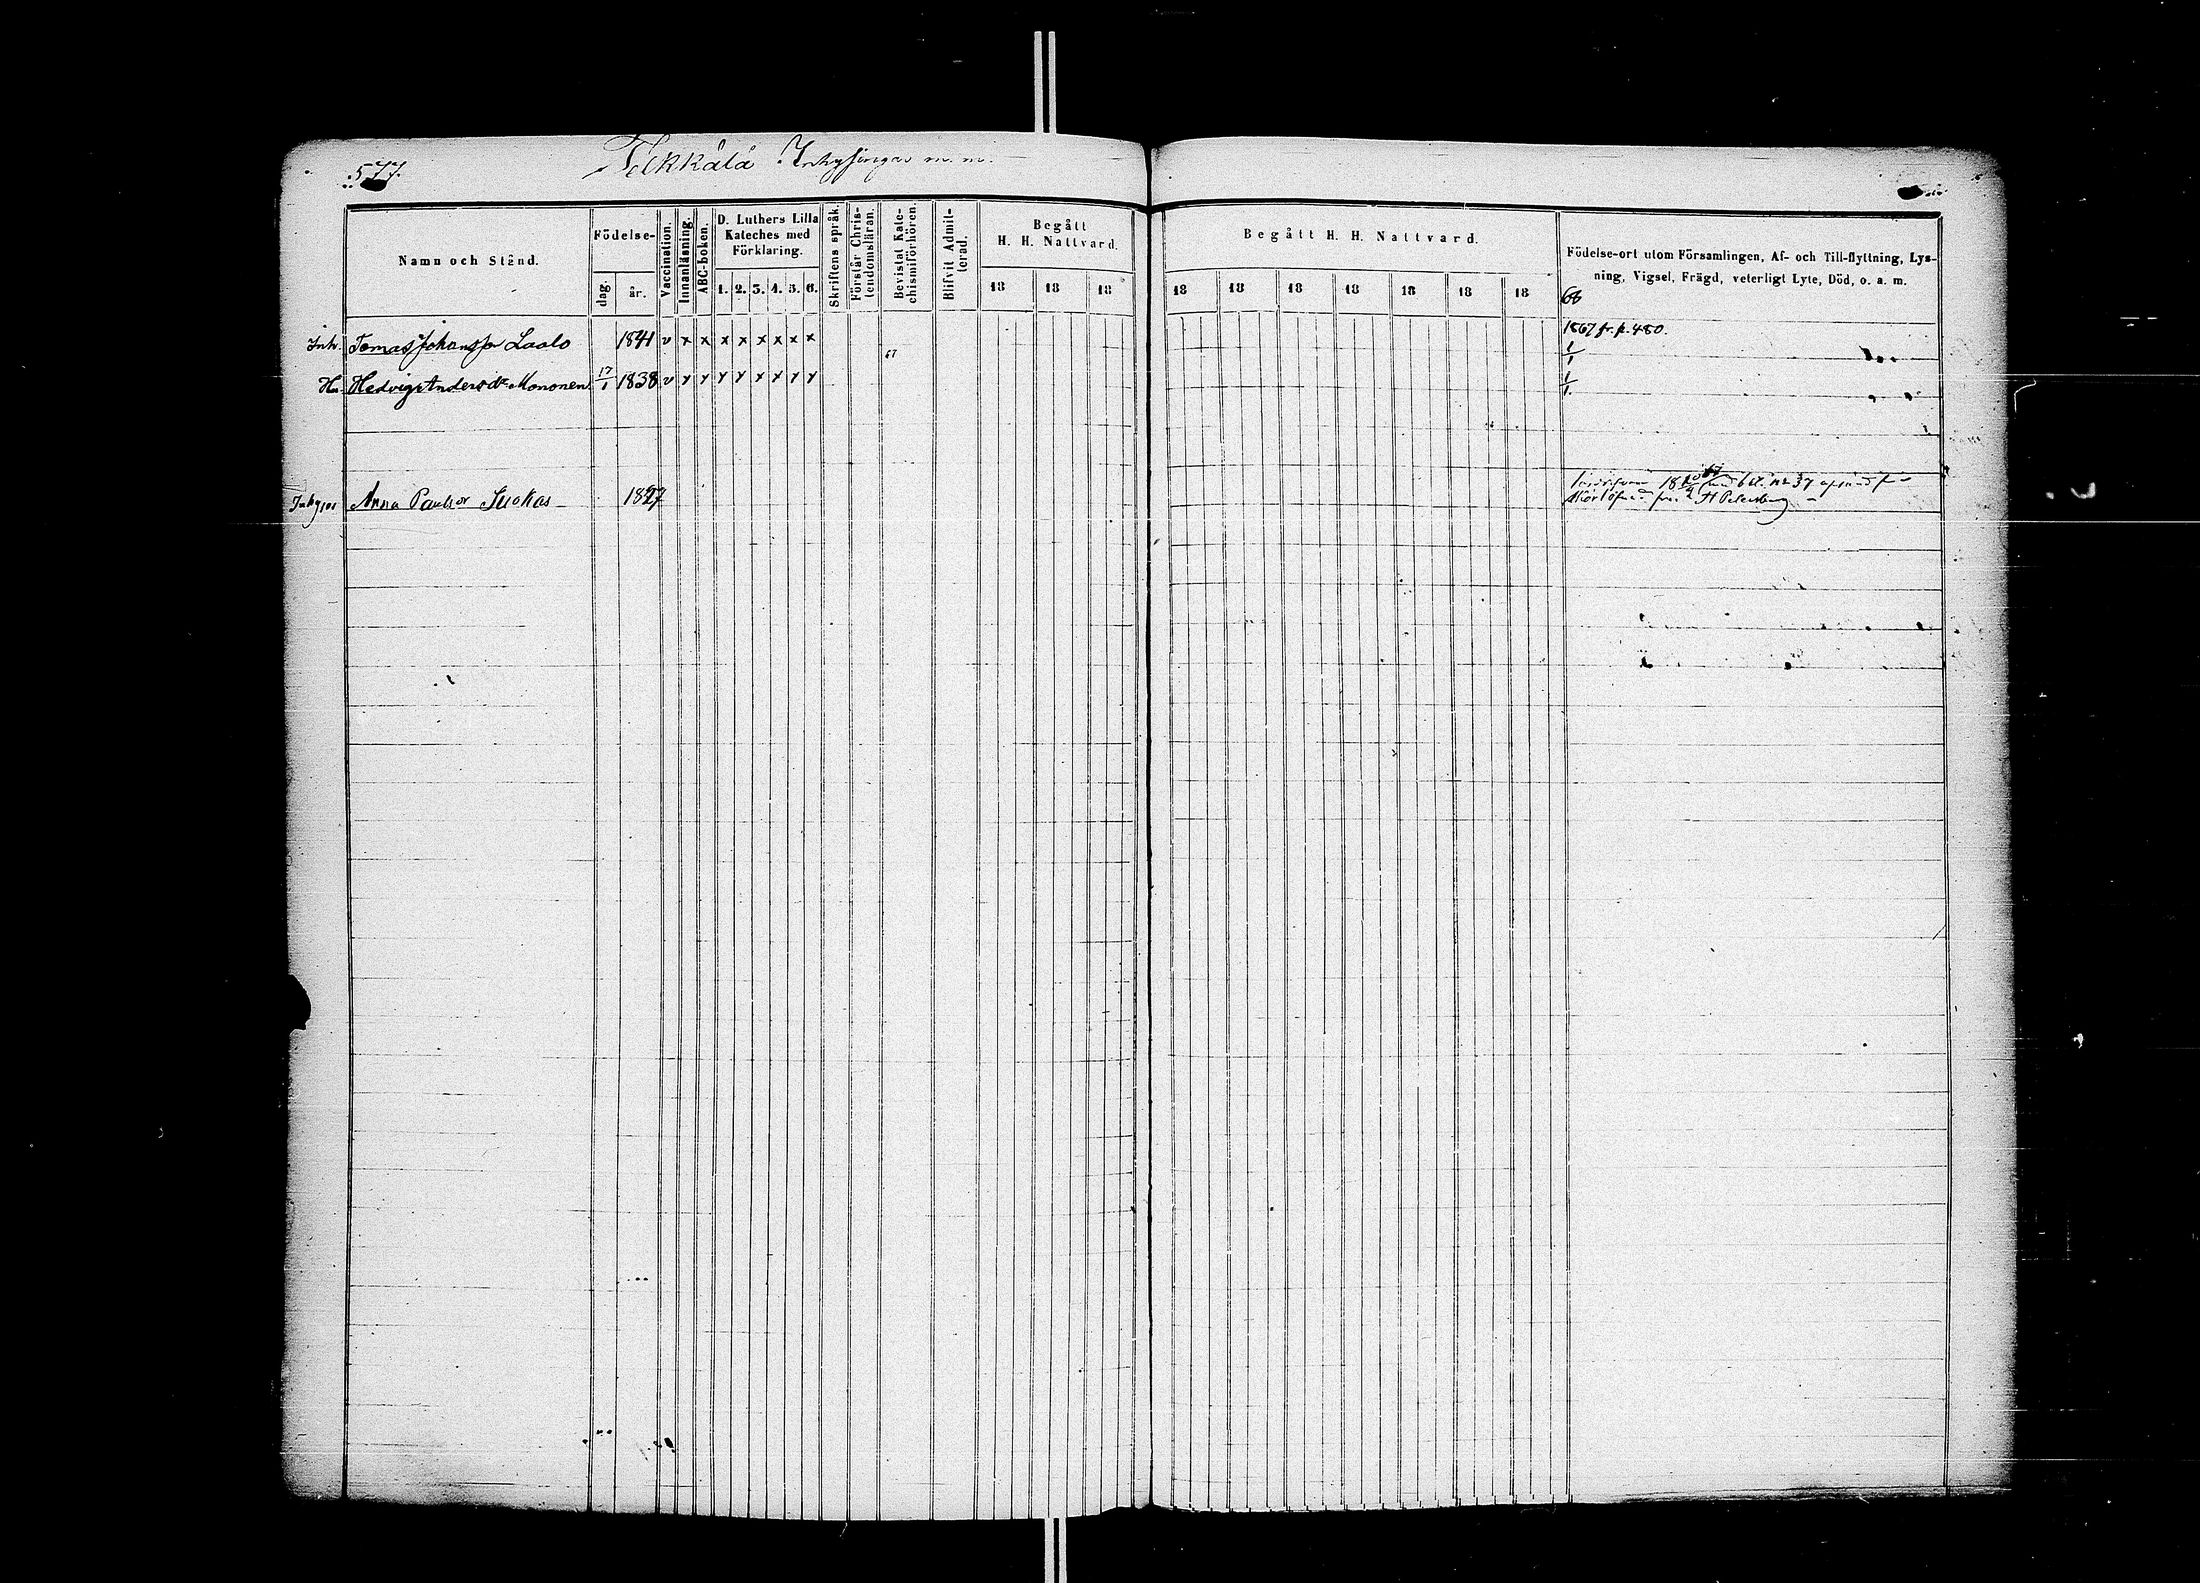 577.
Inhysingar m. m.
Namn och Stånd.
Födelse-
dag.
år.
Vaccination.
Innanläsning.
ABC-boken.
D. Luthers Lilla
Kateches med
Förklaring.
1. 2. 3. 4. 5. 6.
Skriftens språk.
Förstår Chris-
tendomsläran.
Bevistat Kate-
chismiförhören.
Blifvit Admit-
terad.
Begått
H. H. Nattvard.
18 18 18
Begått H. H. Nattvard.
18 18 18 18 18 18 18
Födelse-ort utom Församlingen, Af- och Till-flyttning, Lys-
ning, Vigsel, Frägd, veterligt Lyte, Död, o. a. m.
68
Inh. Tomas Johansson Laalo 1841 v x x x x x x x x 1867 fr. p. 480.
67
1/1
Hu. Hedvig Andersdr Mononen 17/1 1838 v y y y y x x y y 1/1
Anna Paulsdr Suokas 1827
St Petersburg